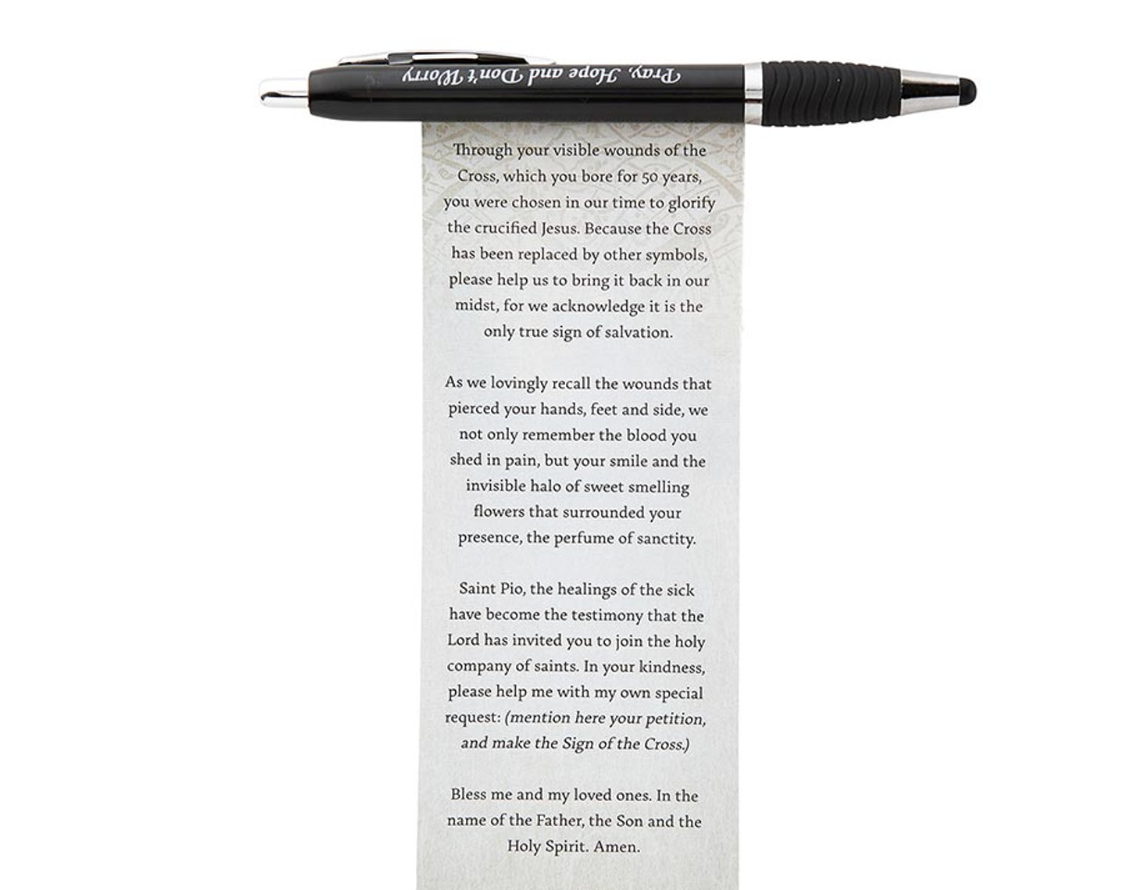 Pray, Hope and Don't Worry
Through your visible wounds of the
Cross, which you bore for 50 years,
you were chosen in our time to glorify
the crucified Jesus. Because the Cross
has been replaced by other symbols,
please help us to bring it back in our
midst, for we acknowledge it is the
only true sign of salvation.
As we lovingly recall the wounds that
pierced your hands, feet and side, we
not only remember the blood you
shed in pain, but your smile and the
invisible halo of sweet smelling
flowers that surrounded your
presence, the perfume of sanctity.
Saint Pio, the healings of the sick
have become the testimony that the
Lord has invited you to join the holy
company of saints. In your kindness,
please help me with my own special
request: (mention here your petition,
and make the Sign of the Cross.)
Bless me and my loved ones. In the
name of the Father, the Son and the
Holy Spirit. Amen.